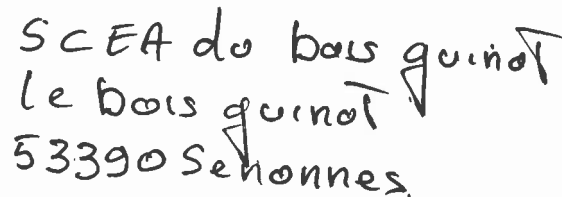 SCEA du bois guinot
le bois guinot
53390 Senonnes